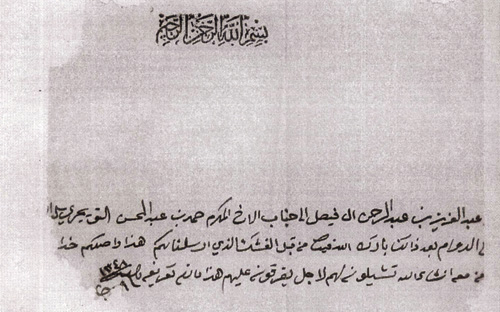 بسم الله الرحمن الرحيم
عبد العزيز بن عبد الرحمن ال فيصل الى جناب الاخ المكرم حمد بن عبد المحسن التويجري
الدوام بعد ذلك بارك الله فيك من قبل الفشك الذي ارسلنا لكم هذا واصلكم
معه انشاء الله تشيلونه لهم لاجل يفرقونه عليهم هذا ما لزم تعريفه
١٣٤٨